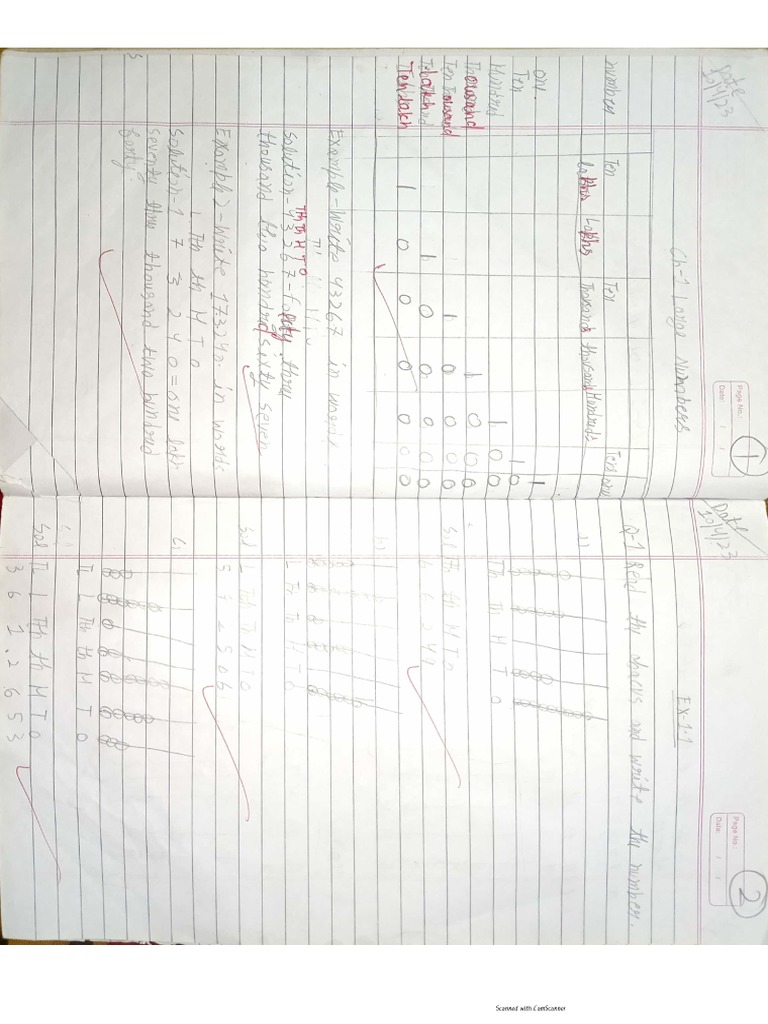 Page No.: 1
Date:
Date
10/4/23
Ch-1 Large Numbers
number Ten Lakhs Ten thousands Hundreds Tens
lakhs Thousands
on. 1
Ten 1 0
Hundred 1 0 0
Thousand 1 0 0 0
Ten Thousand 1 0 0 0 0
1 0 0 0 0 0
Ten lakh 1 0 0 0 0 0 0
Example-Write 43267 in words
Tth th H T O
Solution-43267-forty three
thousand two hundred sixty seven
Example 2-Write 173240. in words
L Tth th H T O
Solution-1 7 3 2 4 0 = one lakh
seventy three thousand two hundred
forty.
Page No.: 2
Date:
Date
10/4/23
EX-1.1
Q-1 Read the abacus and write the number.
Tth th H T O
Sol Tth th H T O
b)
L Tth Th H T O
Sol L Tth Th H T O
5 7 2 5 0 6
c)
TL L Tth th H T O
Sol TL L Tth th H T O
3 6 1 . 2 6 5 3
Scanned with CamScanner